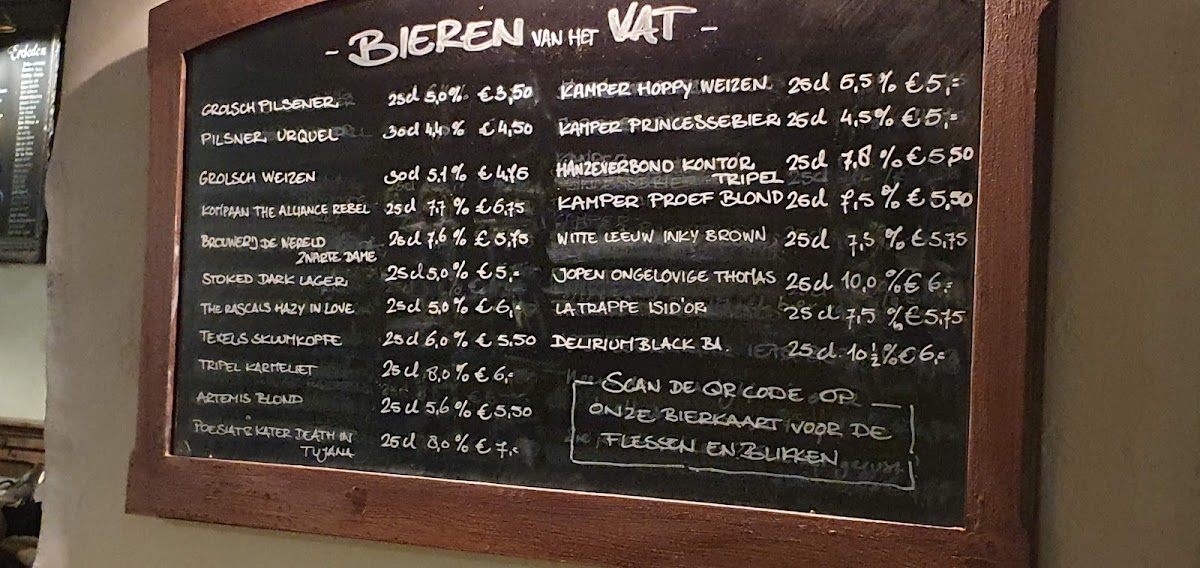 - BIEREN VAN HET VAT -
GROLSCH PILSENER 25cl 5,0% €3,50
PILSNER URQUEL 30cl 4,4% €4,50
GROLSCH WEIZEN 30cl 5,1% €4,75
KOMPAAN THE ALLIANCE REBEL 25cl 7,7% €6,75
BROUWERIJ DE WERELD 25cl 7,6% €5,75
ZWARTE DAME
STOKED DARK LAGER 25cl 5,0% €5,-
THE RASCALS HAZY IN LOVE 25cl 5,0% €6,-
TEXELS SKUUMKOPPE 25cl 6,0% €5,50
TRIPEL KARMELIET 25cl 8,0% €6,-
ARTEMIS BLOND 25cl 5,6% €5,50
POESIAT & KATER DEATH IN 25cl 8,0% €7,-
TIJANA
KAMPER HOPPY WEIZEN 25cl 5,5% €5,-
KAMPER PRINCESSEBIER 25cl 4,5% €5,-
HANZEVERBOND KONTOR 25cl 7,8% €5,50
TRIPEL
KAMPER PROEF BLOND 25cl 7,5% €5,50
WITTE LEEUW INKY BROWN 25cl 7,5% €5,75
JOPEN ONGELOVIGE THOMAS 25cl 10,0% €6,-
LA TRAPPE ISID'OR 25cl 7,5% €5,75
DELIRIUM BLACK BA. 25cl 10½% €6,-
SCAN DE QR CODE OP
ONZE BIERKAART VOOR DE
FLESSEN EN BLIKKEN
Erdeden